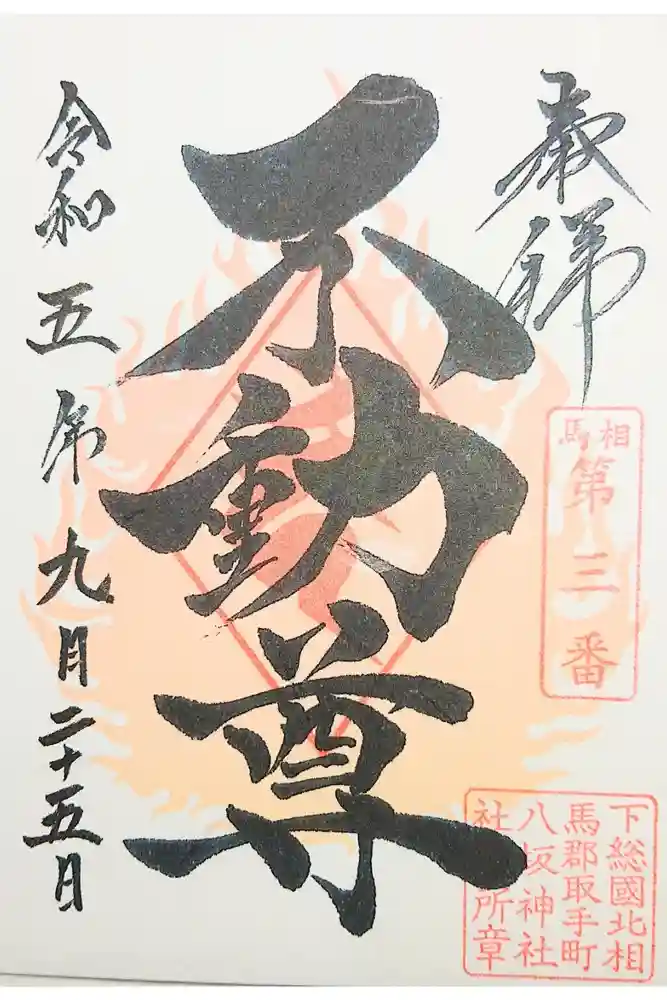 奉拝
相馬
第三番
不動尊
下総國北相
馬郡取手町
八坂神社
社 所章
令和五年九月二十五日